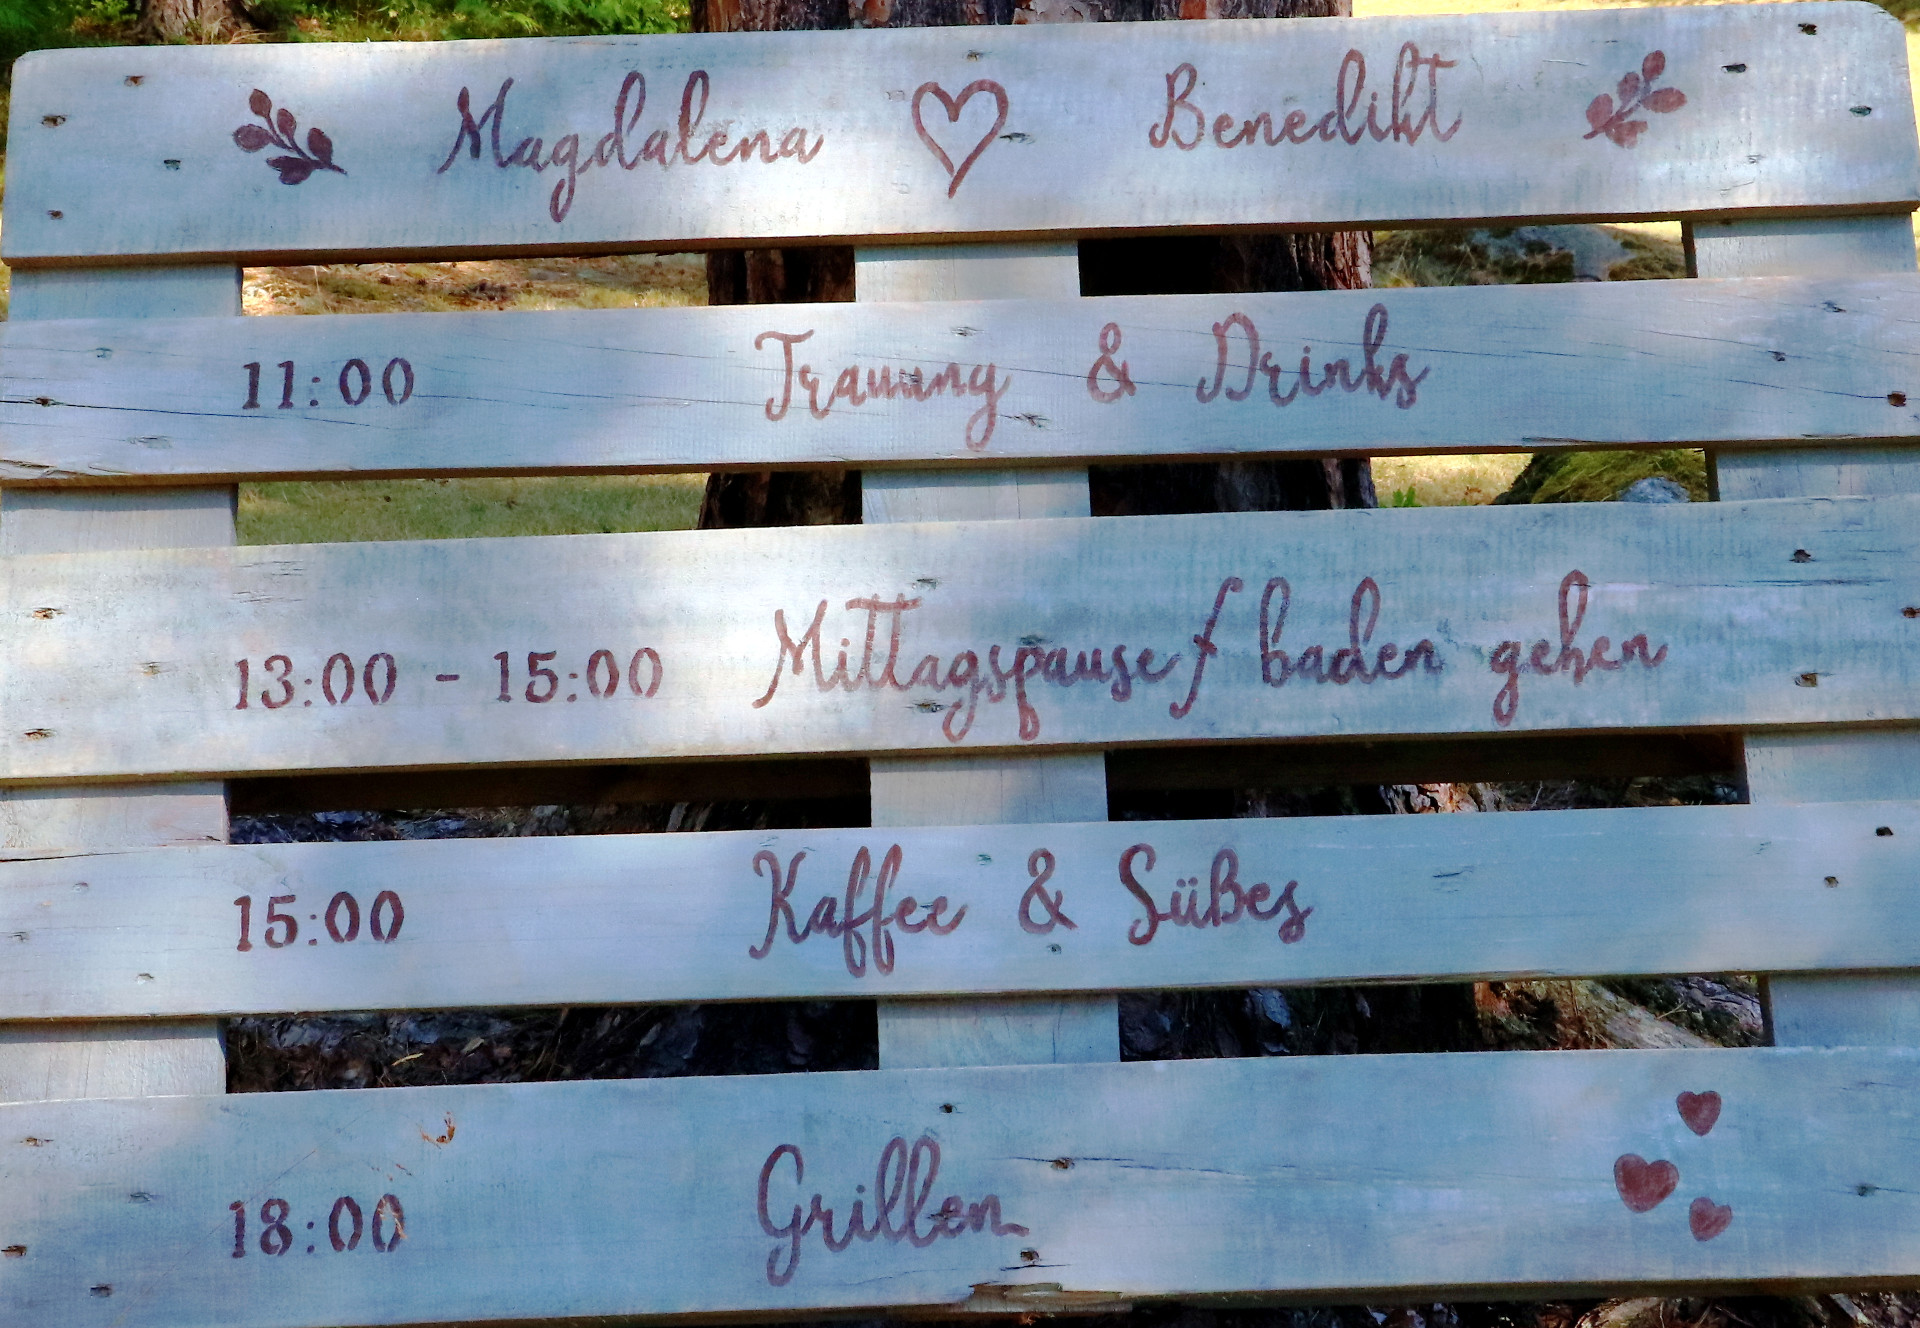 Magdalena Benedikt
11:00 Trauung & Drinks
13:00 - 15:00 Mittagspause / baden gehen
15:00 Kaffee & Süßes
18:00 Grillen